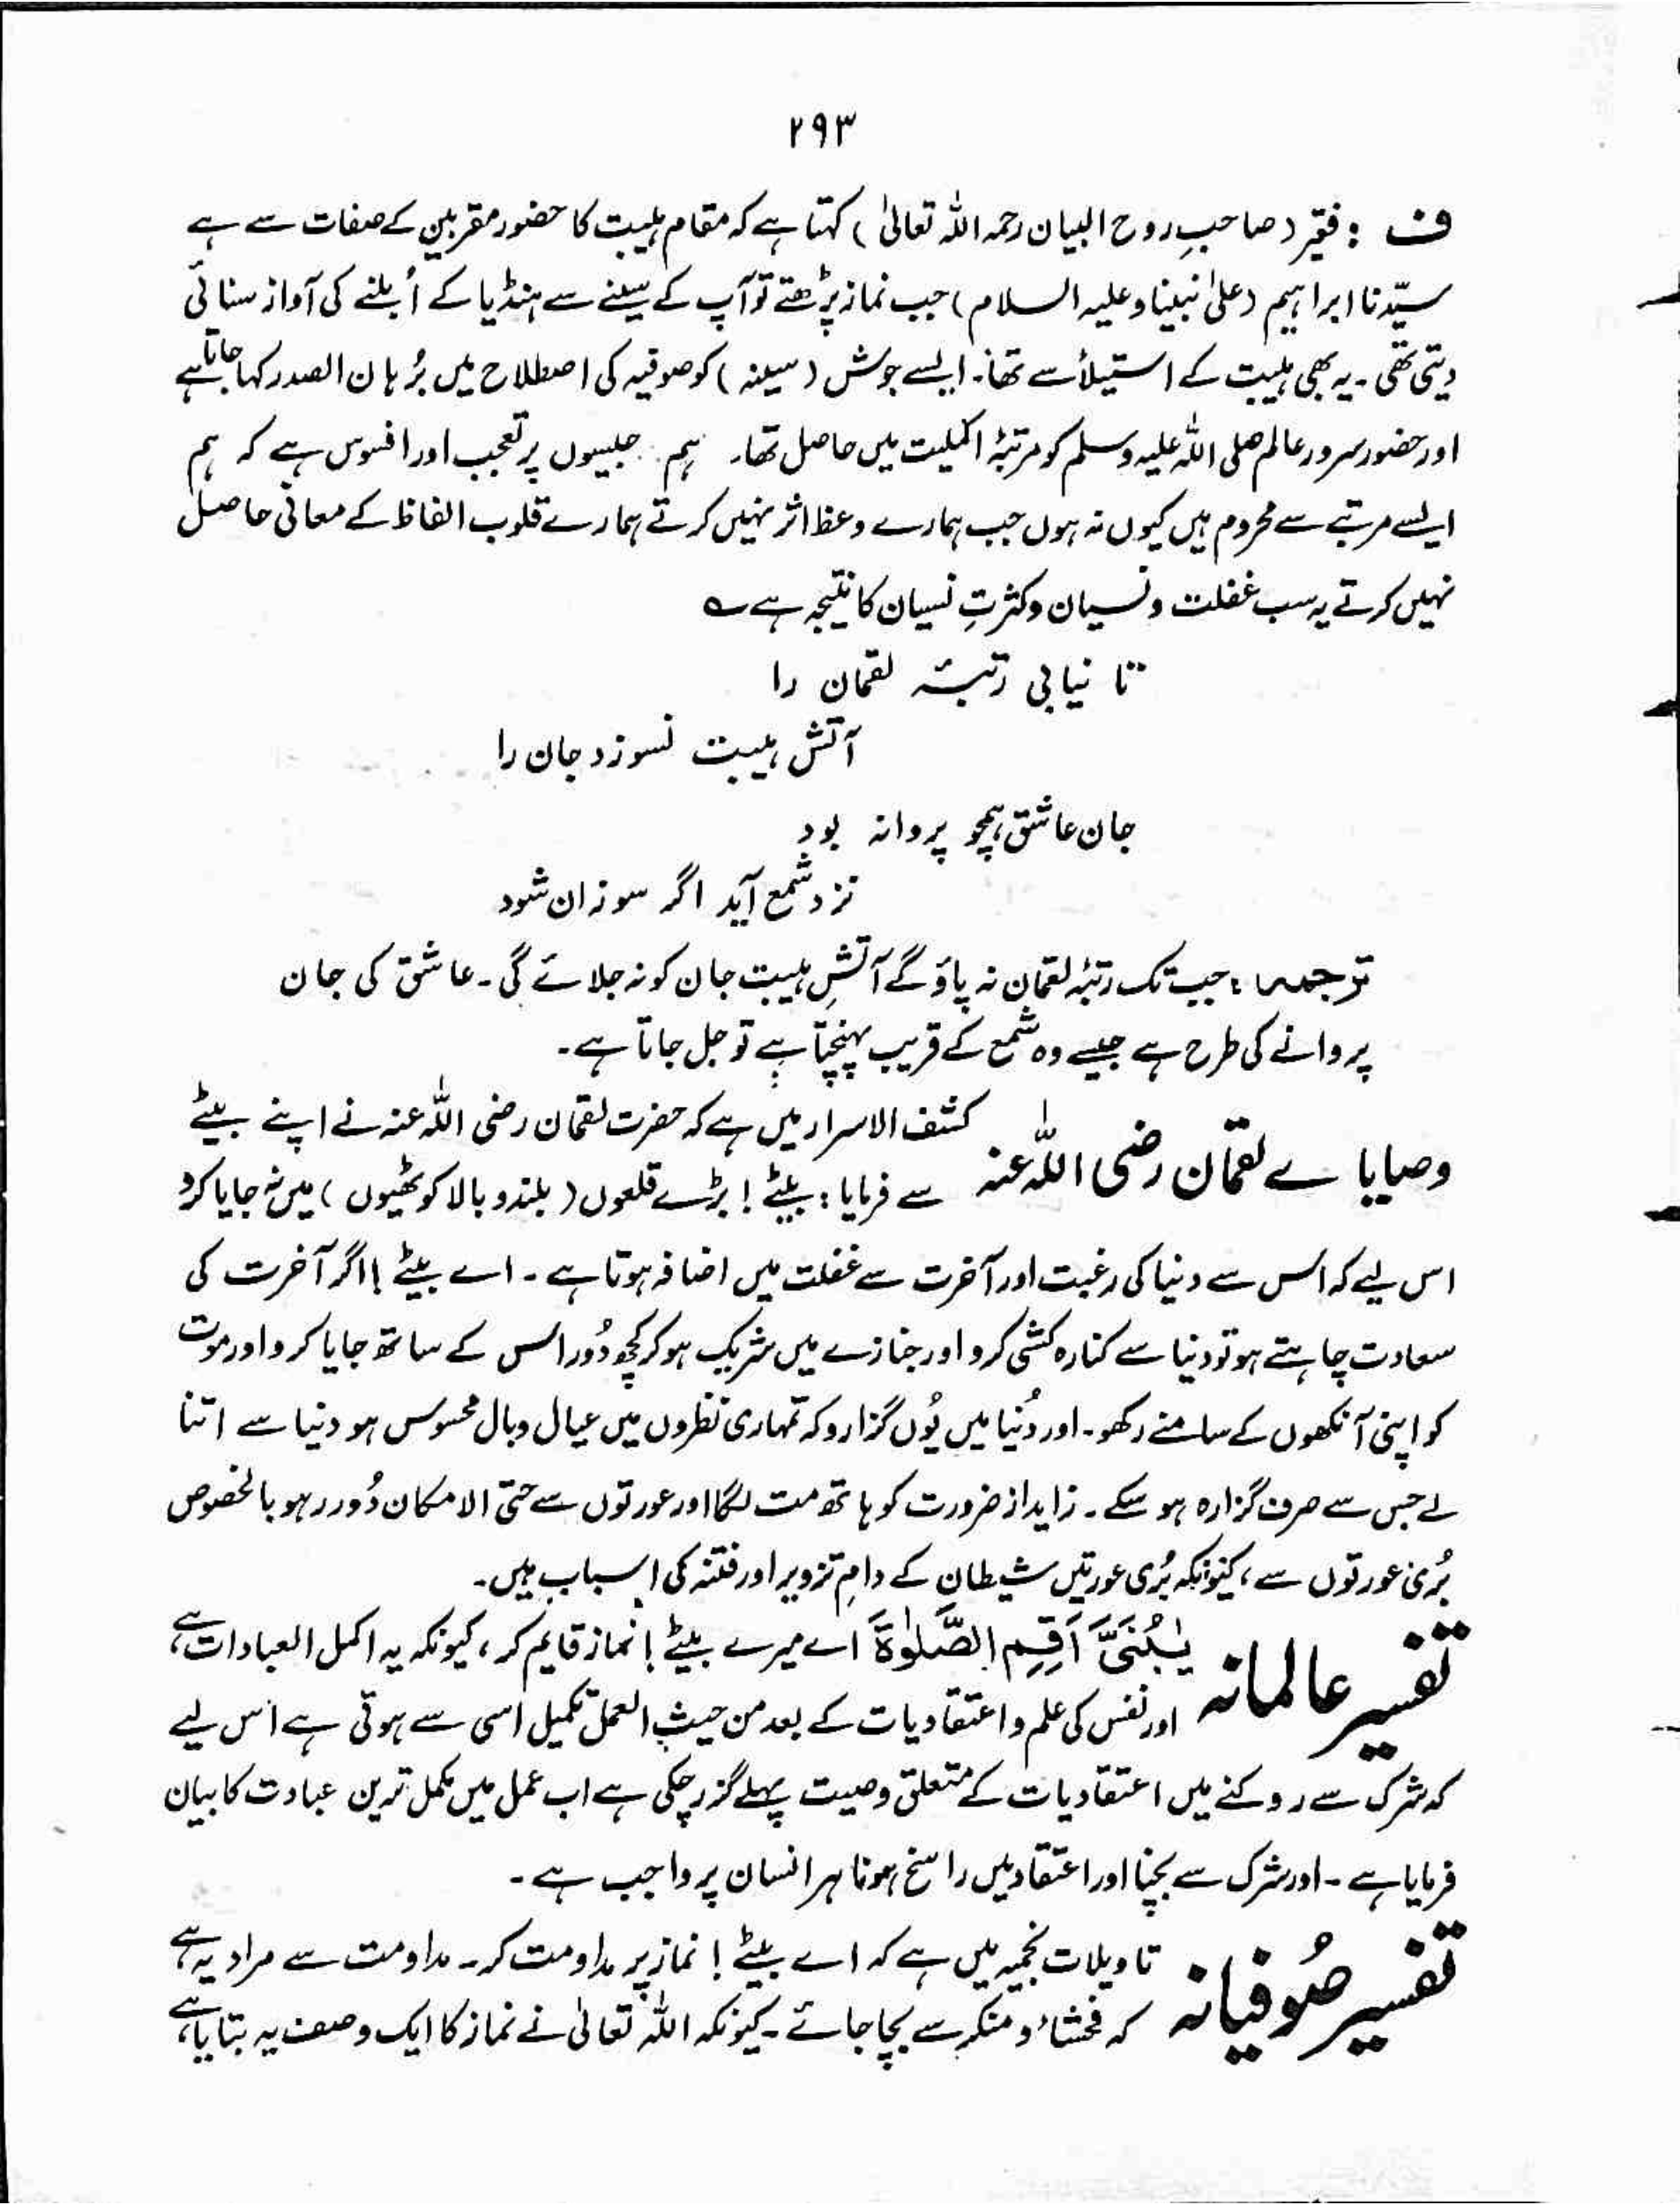 ۲۹۳
ف : فقیر (صاحبِ روح البیان رحمہ اللہ تعالیٰ) کہتا ہے کہ مقام ہیبت کا حضور مقربین کے صفات سے ہے
سیّدنا ابراہیم (علیٰ نبینا و علیہ السلام) جب نماز پڑھتے تو آپ کے سینے سے ہنڈیا کے اُبلنے کی آواز سنائی
دیتی تھی ۔ یہ بھی ہیبت کے استیلأ سے تھا۔ ایسے جوش (سینہ) کو صوفیہ کی اصطلاح میں بُرہان الصدر کہا جاتا ہے
اور حضور سرور عالم صلی اللہ علیہ وسلم کو مرتبۂ اکملیت میں حاصل تھا۔ ہم جیسوں پر تعجب اور افسوس ہے کہ ہم
ایسے مرتبے سے محروم ہیں کیوں نہ ہوں جب ہمارے وعظ اثر نہیں کرتے ہمارے قلوب الفاظ کے معانی حاصل
نہیں کرتے یہ سب غفلت و نسیان و کثرتِ نسیان کا نتیجہ ہے ؎
تا نیابی رتبۂ لقمان را
آتش ہیبت نسوزد جان را
جان عاشق ہمچو پروانہ بود
نزد شمع آید اگر سوزان شود
ترجمہ : جب تک رتبۂ لقمان نہ پاؤ گے آتشِ ہیبت جان کو نہ جلائے گی۔ عاشق کی جان
پروانے کی طرح ہے جیسے وہ شمع کے قریب پہنچتا ہے تو جل جاتا ہے۔
وصایا لے لقمان رضی اللہ عنہ کشف الاسرار میں ہے کہ حضرت لقمان رضی اللہ عنہ نے اپنے بیٹے
سے فرمایا : بیٹے ! بڑے قلعوں (بلند و بالا کوٹھیوں) میں نہ جایا کرو
اس لیے کہ اس سے دنیا کی رغبت اور آخرت سے غفلت میں اضافہ ہوتا ہے ۔ اے بیٹے ! اگر آخرت کی
سعادت چاہتے ہو تو دنیا سے کنارہ کشی کرو اور جنازے میں شریک ہو کر کچھ دُور اس کے ساتھ جایا کرو اور موت
کو اپنی آنکھوں کے سامنے رکھو۔ اور دُنیا میں یُوں گزارو کہ تمہاری نظروں میں عیال وبال محسوس ہو دنیا سے اتنا
لے جس سے صرف گزارہ ہو سکے ۔ زاید از ضرورت کو ہاتھ مت لگا اور عورتوں سے حتی الامکان دُور رہو بالخصوص
بُری عورتوں سے، کیونکہ بُری عورتیں شیطان کے دامِ تزویر اور فتنہ کی اسباب ہیں۔
تفسیر عالمانہ یٰبُنَیَّ اَقِمِ الصَّلٰوۃَ اے میرے بیٹے ! نماز قایم کر، کیونکہ یہ اکمل العبادات ہے،
اور نفس کی علم و اعتقادیات کے بعد من حیث العمل تکمیل اسی سے ہوتی ہے اس لیے
کہ شرک سے روکنے میں اعتقادیات کے متعلق وصیت پہلے گزر چکی ہے اب عمل میں مکمل ترین عبادت کا بیان
فرمایا ہے ۔ اور شرک سے بچنا اور اعتقاد میں راسخ ہونا ہر انسان پر واجب ہے ۔
تفسیر صُوفیانہ تاویلات نجمیہ میں ہے کہ اے بیٹے ! نماز پر مداومت کر۔ مداومت سے مراد یہ ہے
کہ فحشاء و منکر سے بچا جائے ۔ کیونکہ اللہ تعالیٰ نے نماز کا ایک وصف یہ بتایا ہے،